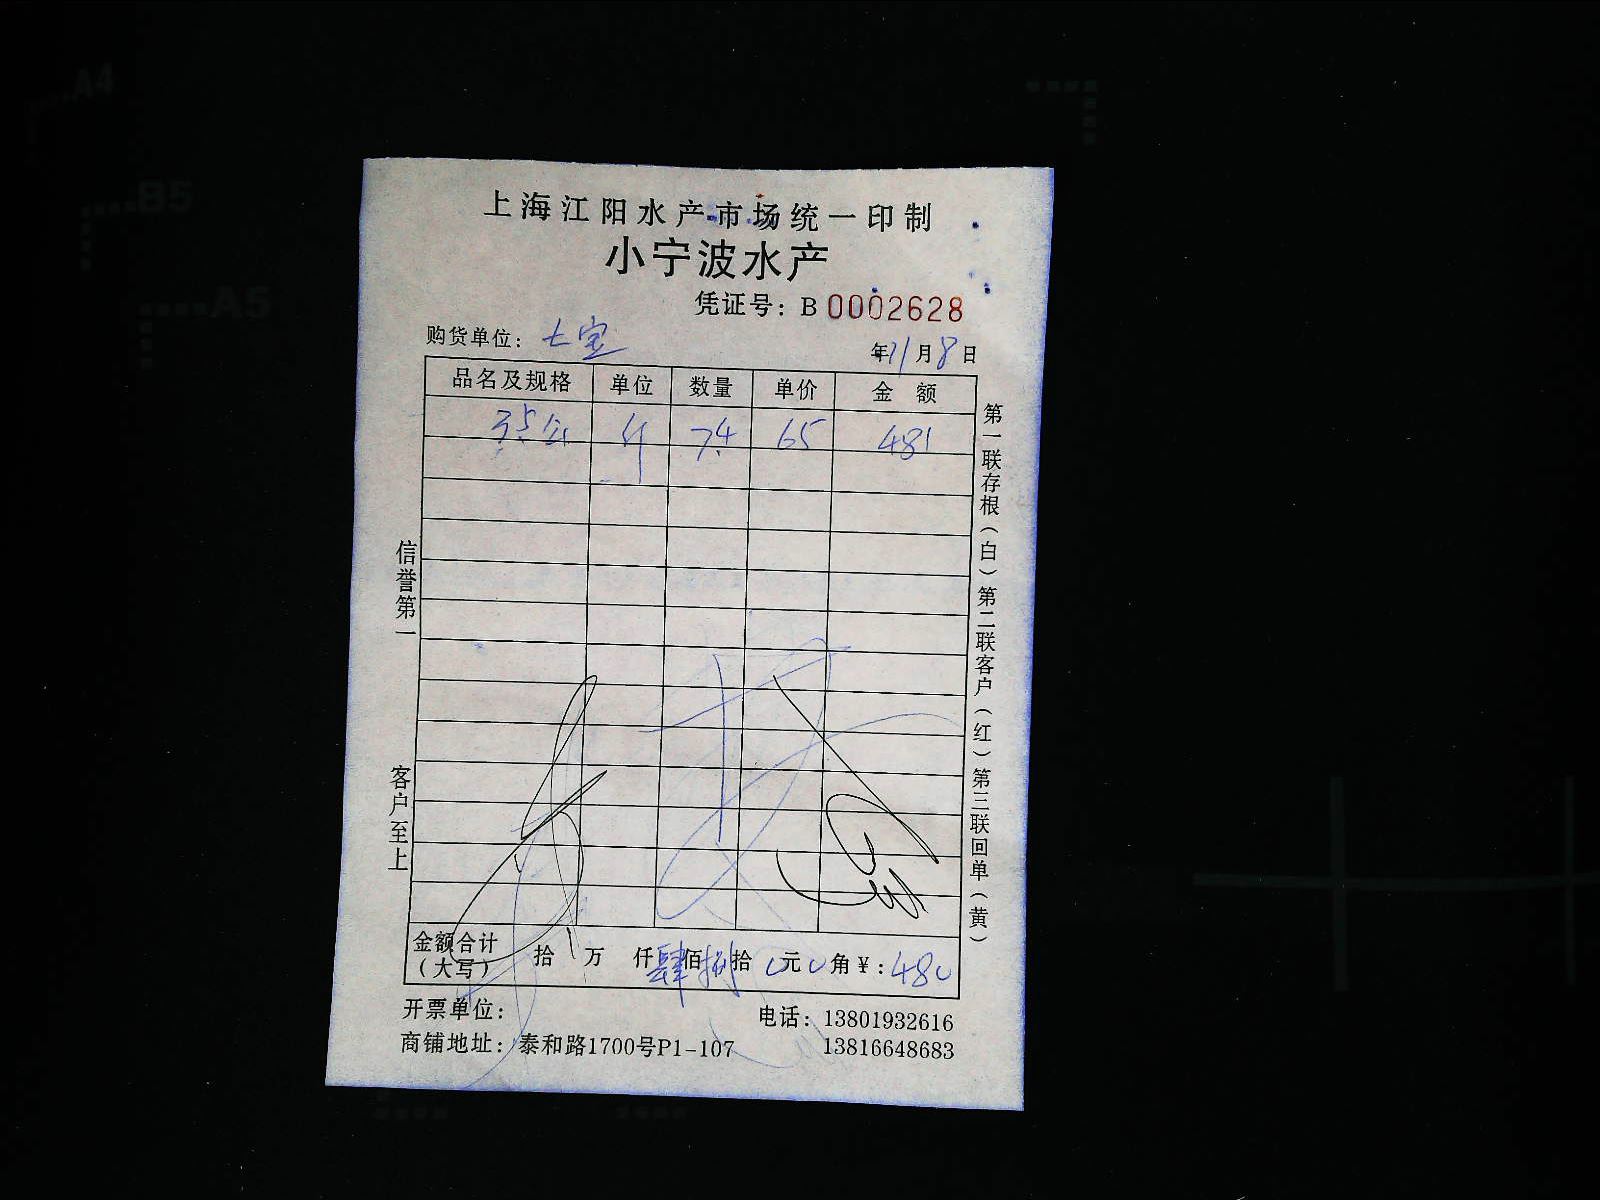 上海江阳水产市场统一印制
小宁波水产
凭证号：B 0002628
购货单位：七宝
年11月8日
品名及规格 单位 数量 单价 金 额
3.5公 斤 7.4 65 481
信誉第一
客户至上
第一联存根（白）第二联客户（红）第三联回单（黄）
金额合计（大写） 拾 万 仟肆佰捌拾0元0角￥：480
开票单位：
电话：13801932616
商铺地址：泰和路1700号P1-107
13816648683
A4
B5
A5